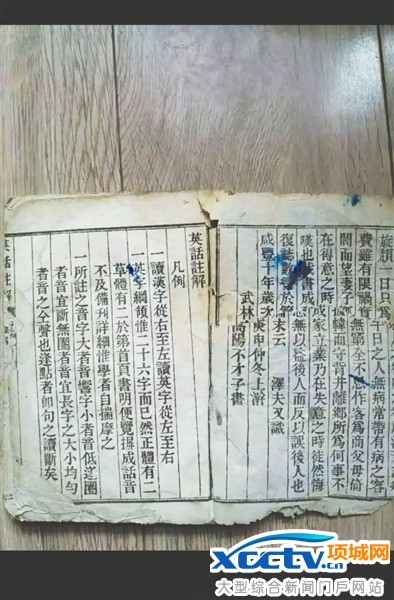 一日只爲千日之人無病常帶有病之客
費雖有限禍實無窮第全不念作客爲商父母倚
閭而望妻子幃而守背井離鄉所爲何事不
在得意之時成家立業乃在失意之時徒然悔
嘆也哉書成無以益後人而反以誤後人也
復誌數於末云 澤夫又識
咸豐十年歲次庚申仲冬上澣
武林高陽不才子書
英話註解
凡例
一讀漢字從右至左讀英字從左至右
一英字綱領惟二十六字而已然正體有二
草體有二於第首頁書明便覽揖成話音
不及備刋詳細惟學者自揣摩之
一所註之音字大者音響字小者音低逗圈
者音宜斷無圈者音宜長字之大小均勻
者音之全聲也逢點者卽句之讀斷矣
英話註解
xcctv.cn 项城网
大型·综合·新闻门户网站